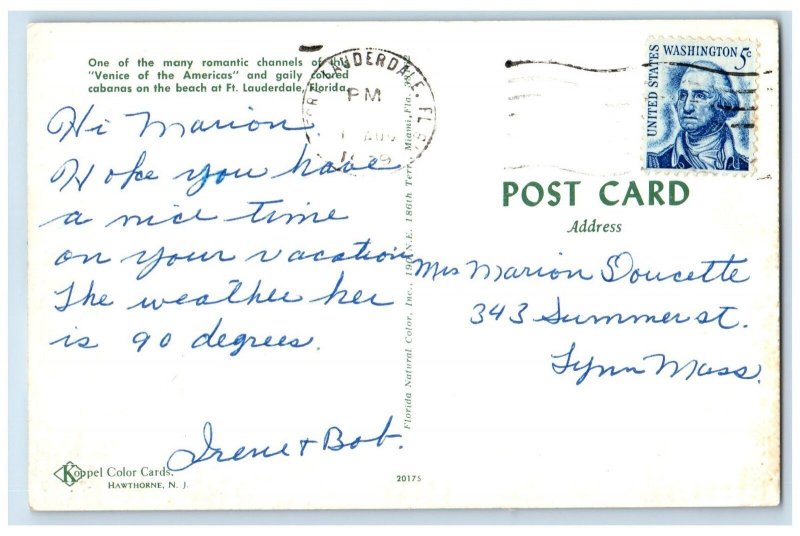 One of the many romantic channels of this
"Venice of the Americas" and gaily colored
cabanas on the beach at Ft. Lauderdale, Florida.
Hi Marion
Hope you have
a nice time
on your vacation
The weather her
is 90 degrees.
Irene + Bob.
Koppel Color Cards.
HAWTHORNE, N. J.
20175
Florida Natural Color, Inc., N.E. 186th Terr. Miami, Fla.
LAUDERDALE, FLA
PM
AUG
UNITED STATES
WASHINGTON 5c
POST CARD
Address
Mrs Marion Doucette
343 Summer st.
Lynn Mass.